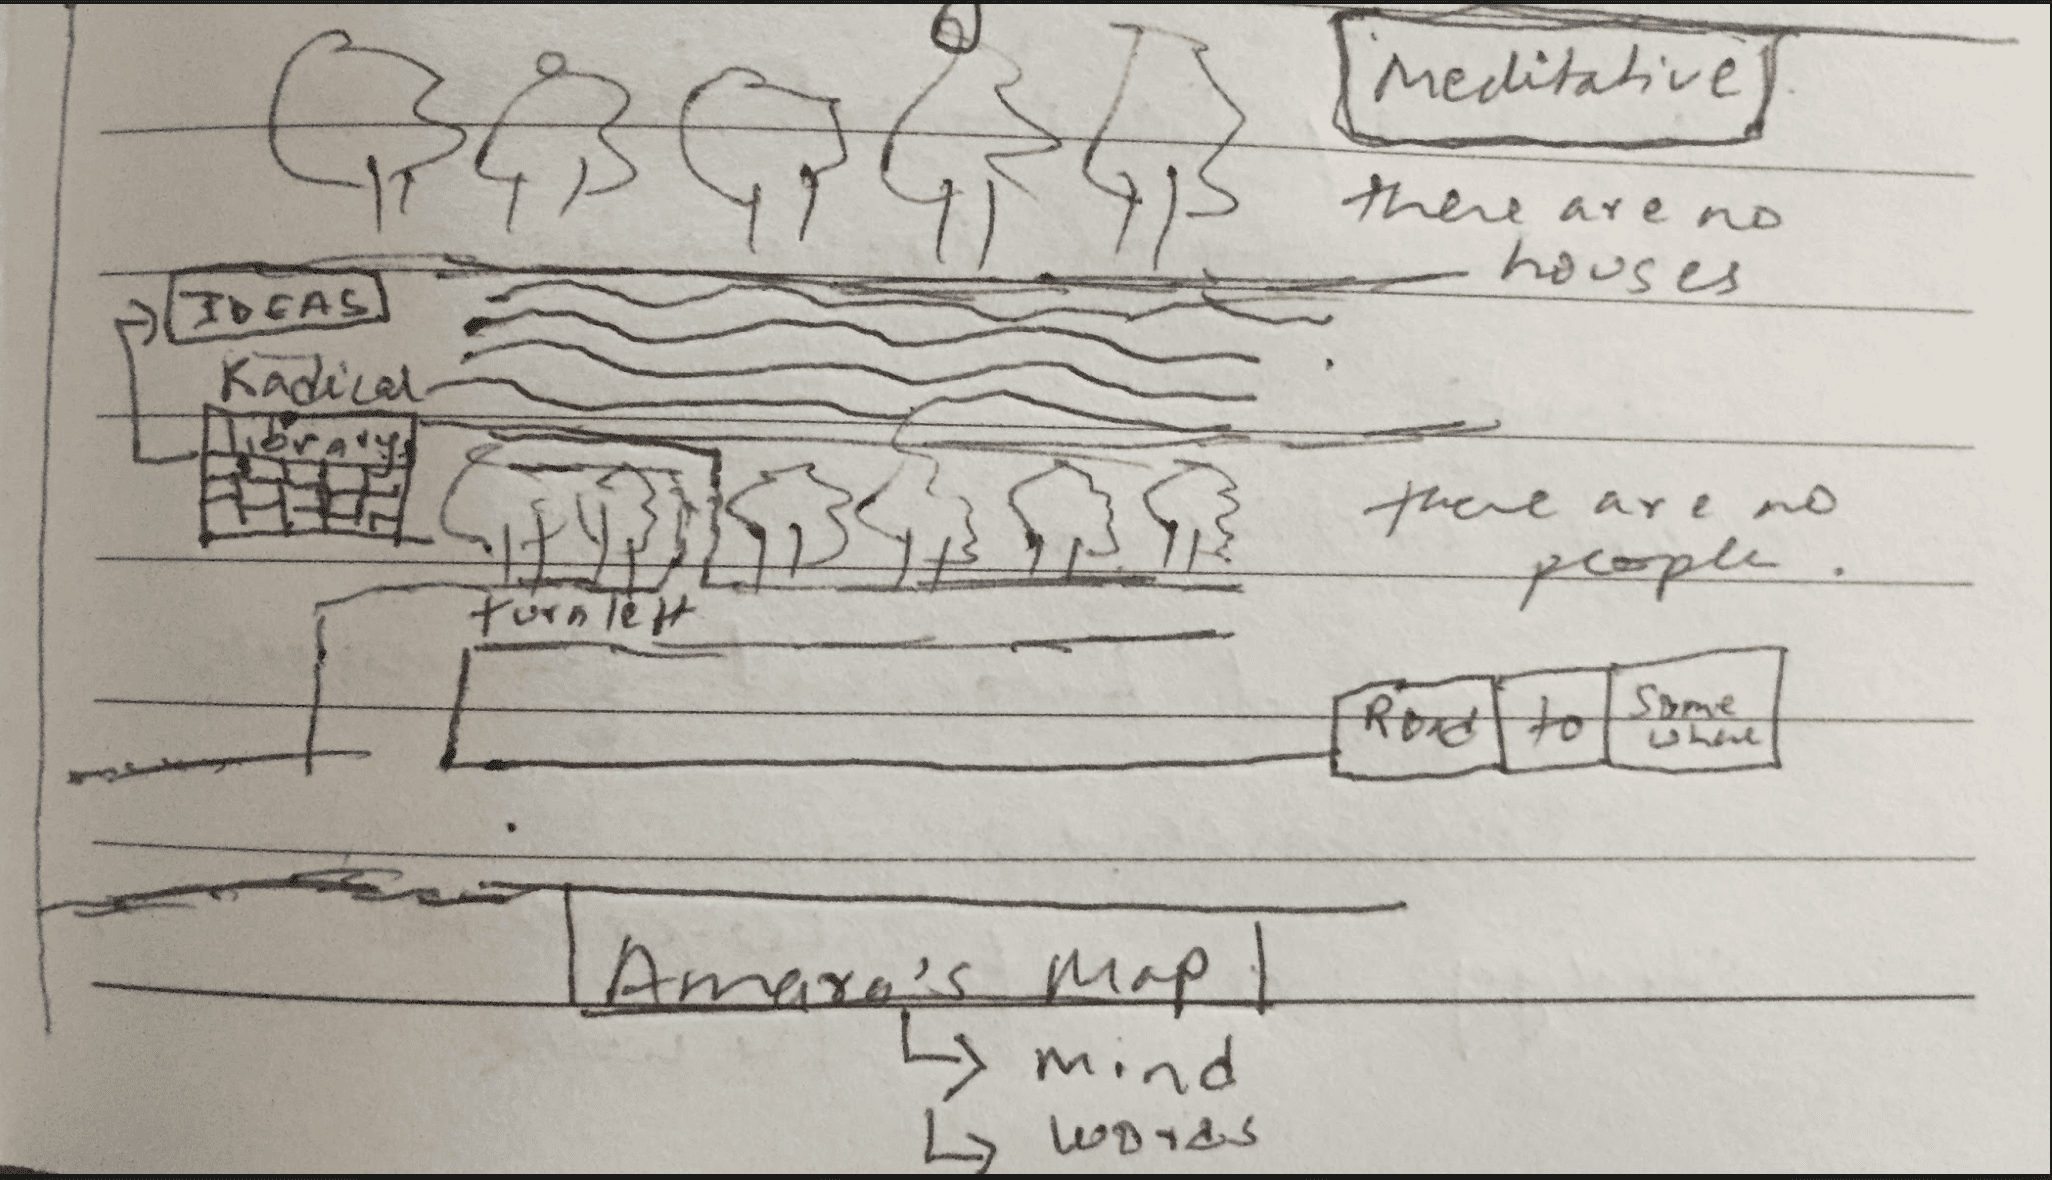 Meditative
there are no
houses
IDEAS
Radical
Library
there are no
people.
turn left
Road to Some
where
Amara's Map
mind
words